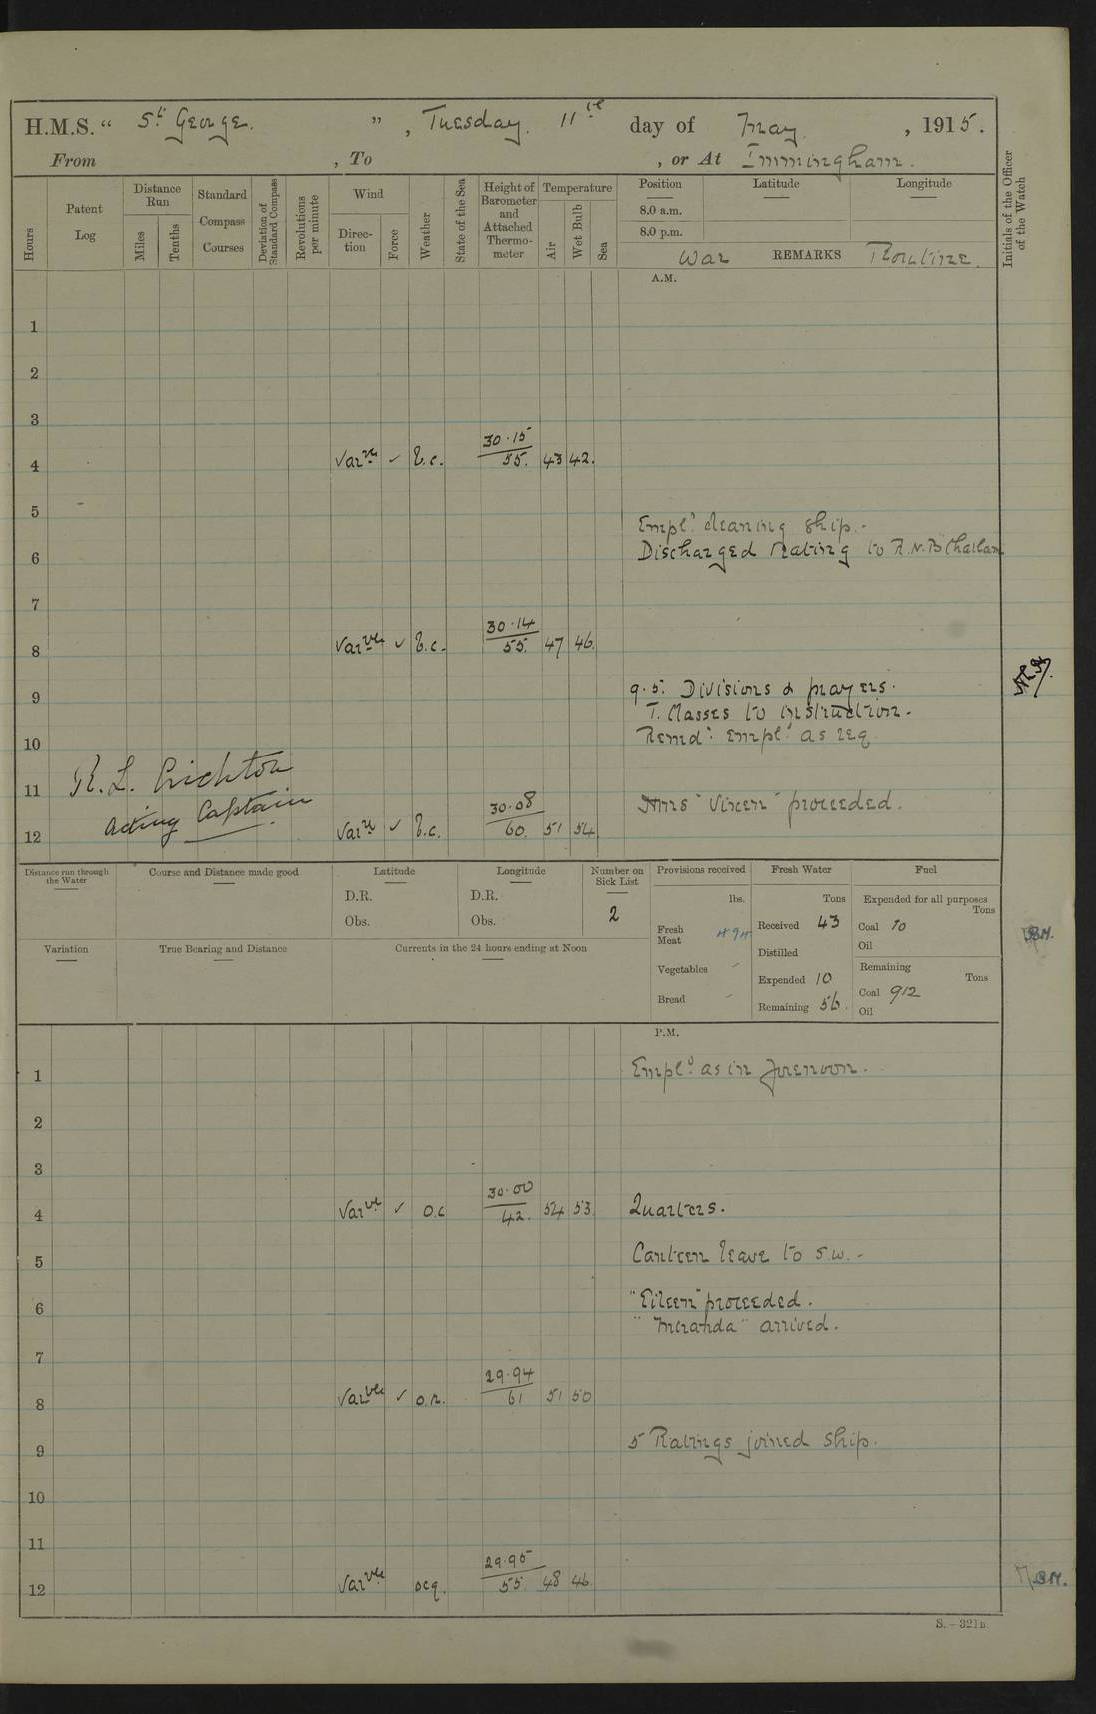 H.M.S. " St George. ", Tuesday. 11th day of May, 1915.
From , To , or At Immingham.
Hours
Patent Log
Distance Run
Miles
Tenths
Standard Compass Courses
Deviation of Standard Compass
Revolutions per minute
Wind
Direction
Force
Weather
State of the Sea
Height of Barometer and Attached Thermometer
Temperature
Air
Wet Bulb
Sea
Position
Latitude
Longitude
8.0 a.m.
8.0 p.m.
War REMARKS Routine.
Initials of the Officer of the Watch
A.M.
1
2
3
30.15
4 Varve ✓ b.c. 55. 43 42.
5
Empld cleaning ship.
6 Discharged Rating to R.N.B Chatham
7
30.14
8 Varve ✓ b.c. 55. 47 46.
9 9.5. Divisions & prayers.
T. Classes to instruction.
10 Remdr Empld as req
11 R. L. Crichton
Acting Captain
30.08
"proceeded.
12 Varve ✓ b.c. 60. 51 54.
Distance run through the Water
Course and Distance made good
Latitude
D.R.
Obs.
Longitude
D.R.
Obs.
Number on Sick List
2
Provisions received
lbs.
Fresh Meat 494
Vegetables -
Bread -
Fresh Water
Tons
Received 43
Distilled
Expended 10
Remaining 56.
Fuel
Expended for all purposes
Tons
Coal 10
Oil
Remaining
Tons
Coal 912
Oil
Variation
True Bearing and Distance
Currents in the 24 hours ending at Noon
P.M.
1 Empld as in forenoon.
2
3
30.00
4 Varve ✓ o.c 42. 54 53 Quarters.
5 Canteen leave to S.W.
6 "Eileen" proceeded.
"Miranda" arrived.
7
29.94
8 Varve ✓ o.r. 61 51 50
9 5 Ratings joined ship.
10
11
29.95
12 Varve ocq. 55 48 46
S.—321b.